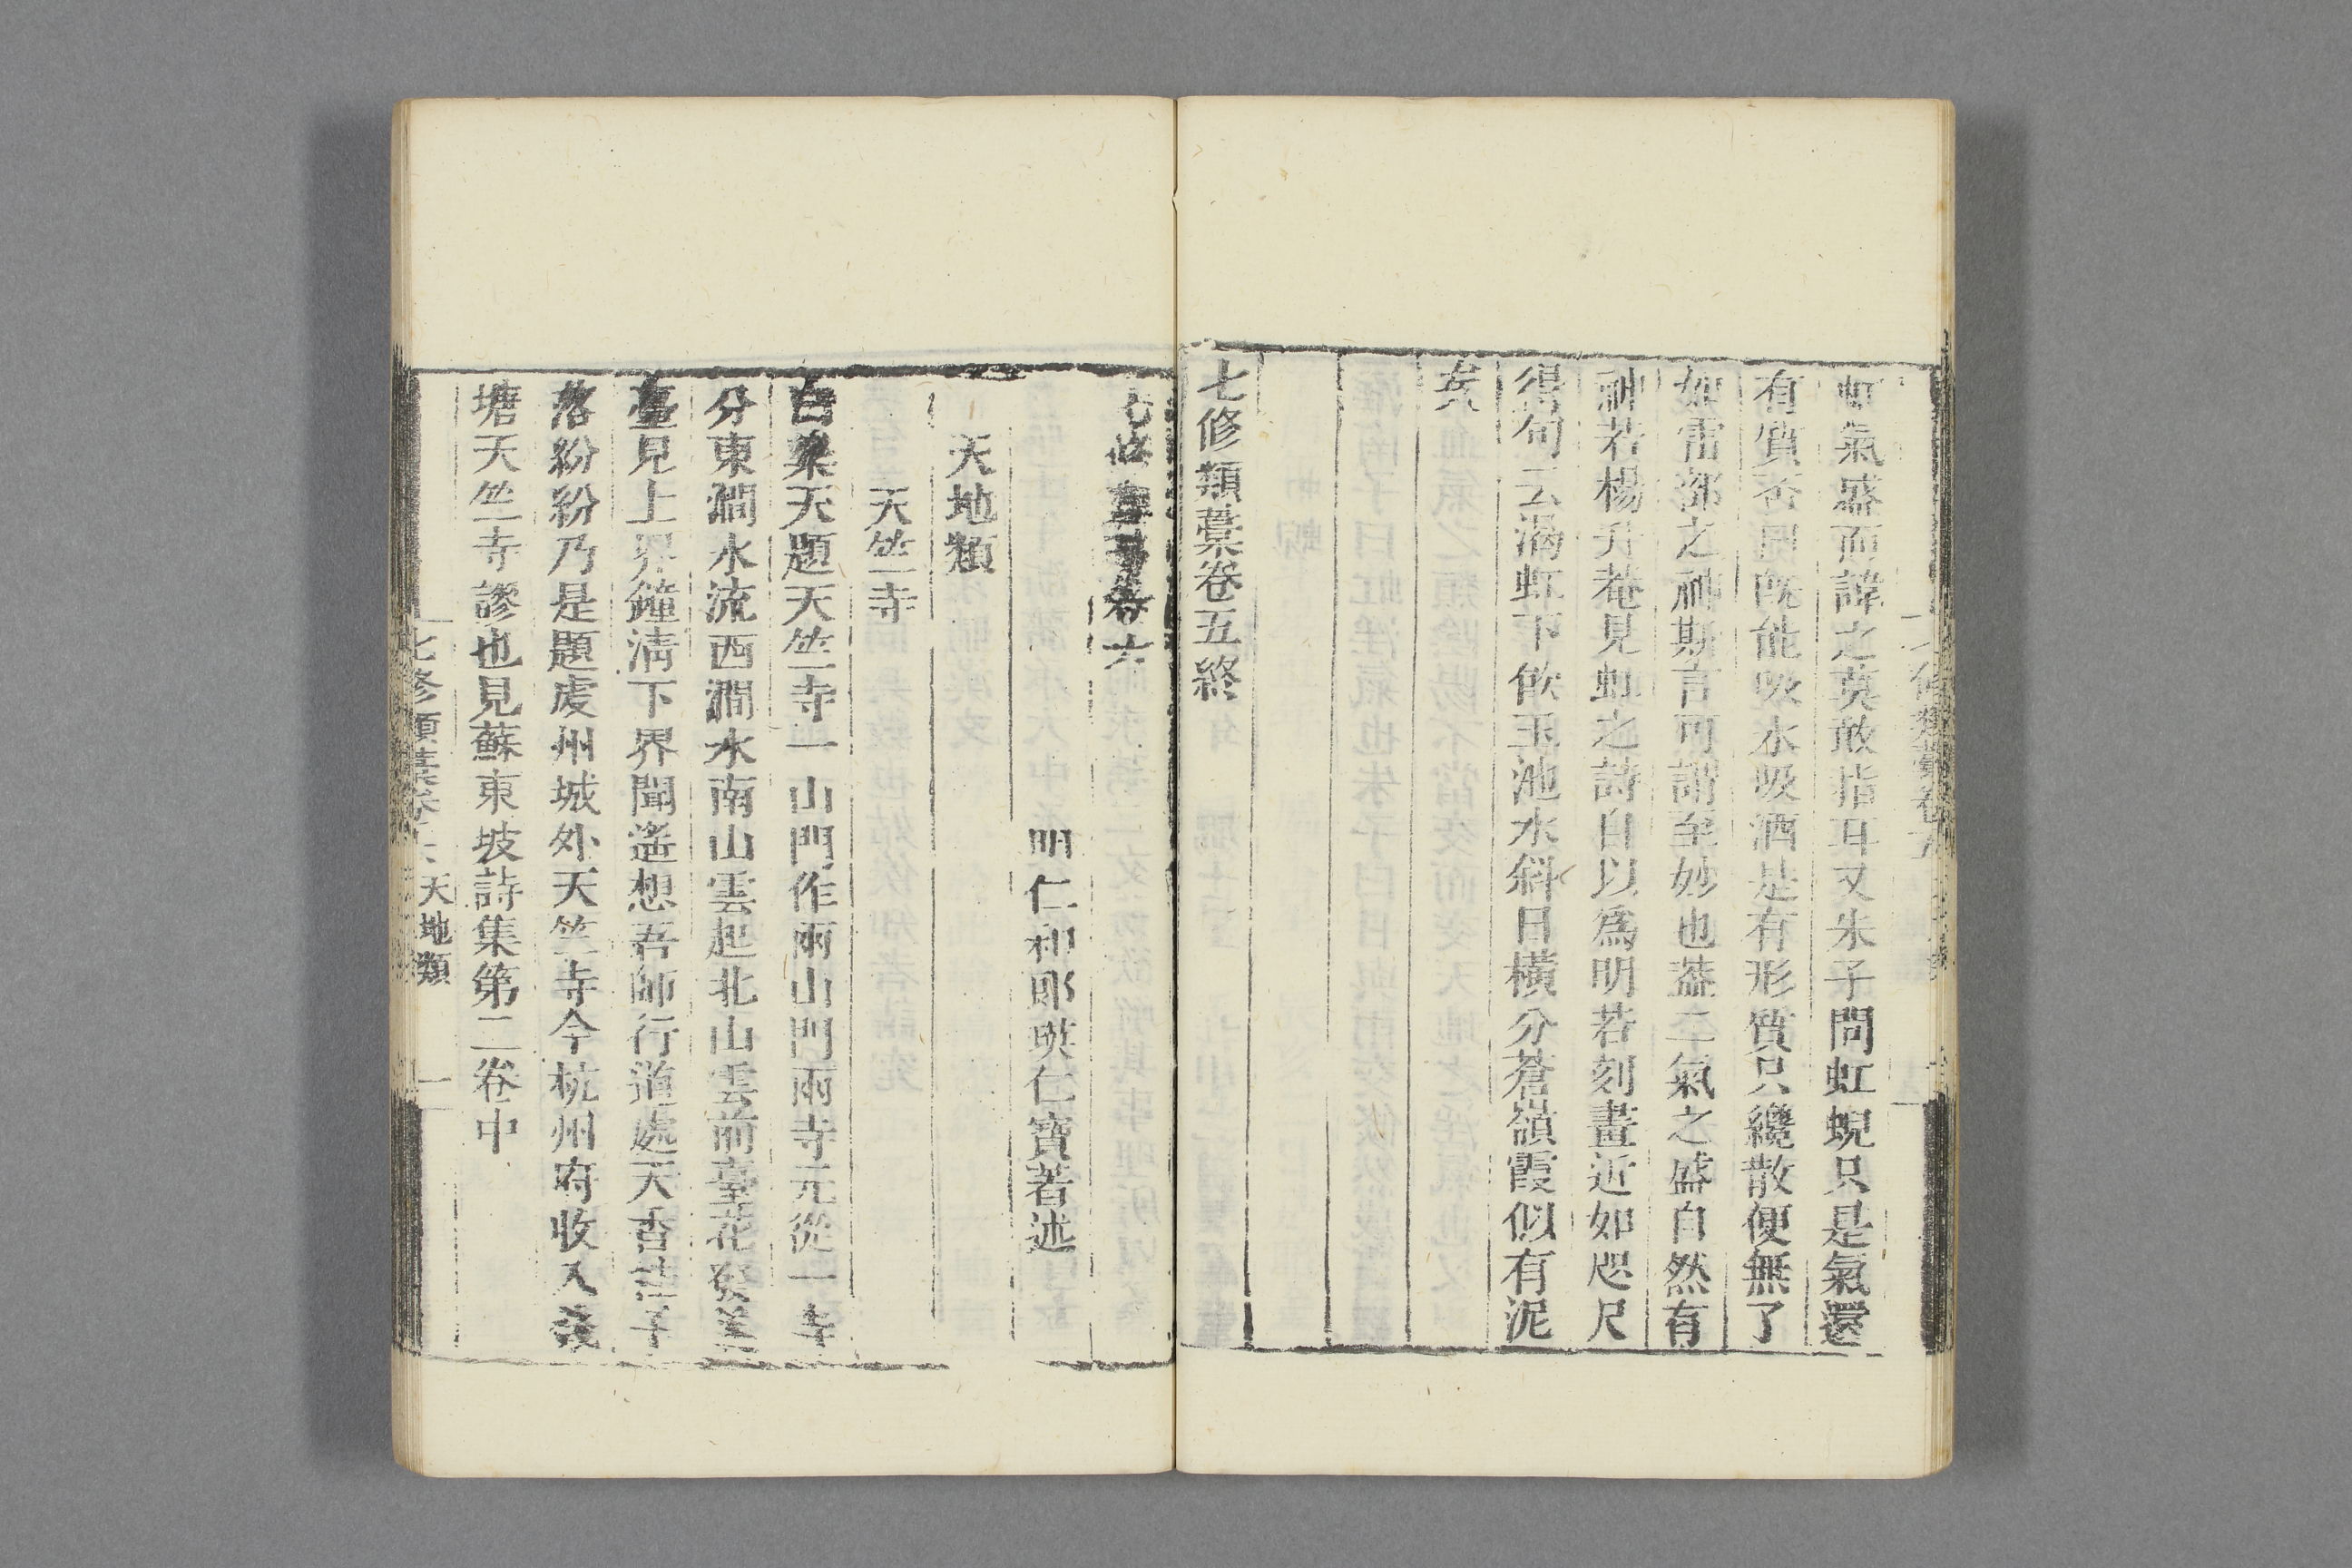 虹氣盛而諱之莫敢指耳又朱子問虹蜺只是氣還
有質否曰旣能吸水吸酒是有形質只纔散便無了
如雷部之神斯言可謂至妙也蓋二氣之盛自然有
神若楊升菴見虹之詩自以爲明若刻畫近如咫尺
得句云渴虹下飲玉池水斜日橫分蒼嶺霞似有泥
矣
七修類藁卷五終
七修類藁卷六
明仁和郎瑛仁寶著述
天地類
天竺寺
白樂天題天竺寺一山門作兩山門兩寺元從一寺
分東澗水流西澗水南山雲起北山雲前臺花發後
臺見上界鐘淸下界聞遙想吾師行道處天香桂子
落紛紛乃是題虔州城外天竺寺今杭州府收入錢
塘天竺寺謬也見蘇東坡詩集第二卷中
七修類藁卷六 天地類 一